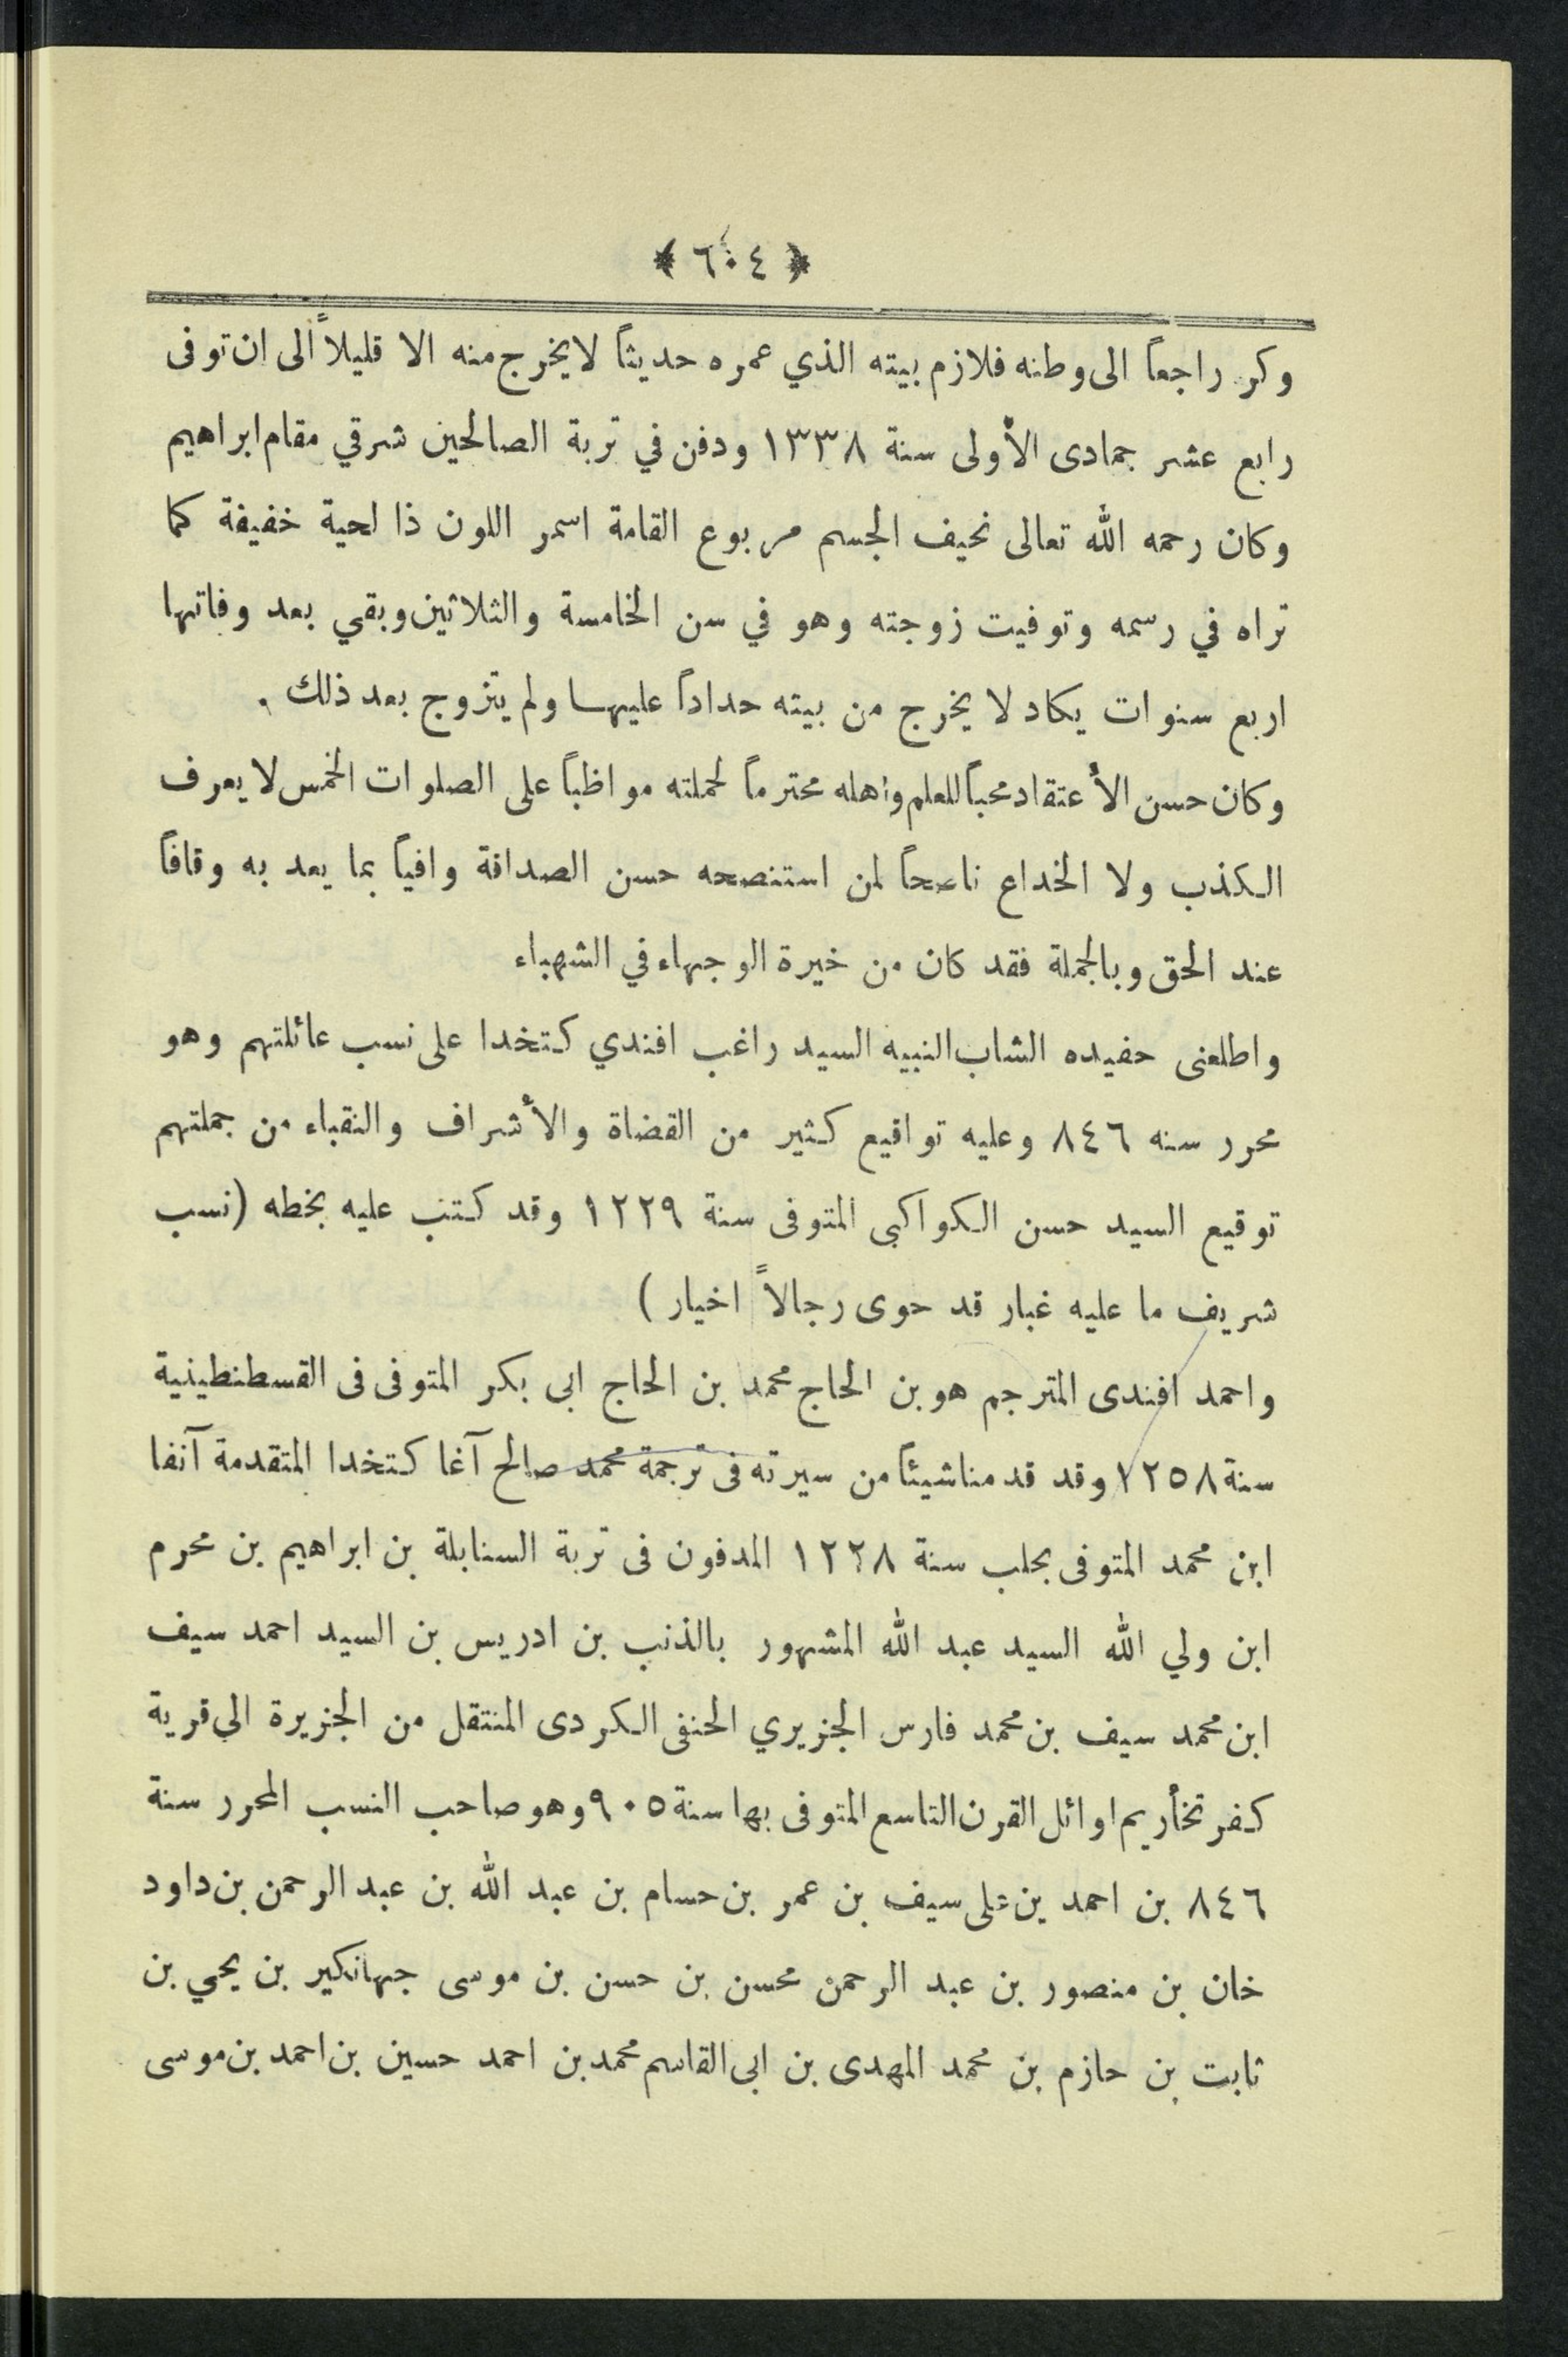 ﴿ ٦٠٤ ﴾
وكر راجعاً الى وطنه فلازم بيته الذي عمره حديثاً لا يخرج منه الا قليلاً الى ان توفى
رابع عشر جمادى الأولى سنة ١٣٣٨ ودفن في تربة الصالحين شرقي مقام ابراهيم
وكان رحمه الله تعالى نحيف الجسم مربوع القامة اسمر اللون ذا لحية خفيفة كما
تراه في رسمه وتوفيت زوجته وهو في سن الخامسة والثلاثين وبقي بعد وفاتها
اربع سنوات يكاد لا يخرج من بيته حداداً عليها ولم يتزوج بعد ذلك .
وكان حسن الأعتقاد محباً للعلم واهله محترماً لحملته مواظباً على الصلوات الخمس لا يعرف
الكذب ولا الخداع ناصحاً لمن استنصحه حسن الصداقة وافياً بما يعد به وقافاً
عند الحق وبالجملة فقد كان من خيرة الوجهاء في الشهباء
واطلعنى حفيده الشاب النبيه السيد راغب افندي كتخدا على نسب عائلتهم وهو
محرر سنه ٨٤٦ وعليه تواقيع كثير من القضاة والأشراف والنقباء من جملتهم
توقيع السيد حسن الكواكبى المتوفى سنة ١٢٢٩ وقد كتب عليه بخطه (نسب
شريف ما عليه غبار قد حوى رجالاً اخيار )
واحمد افندى المترجم هو بن الحاج محمد بن الحاج ابى بكر المتوفى فى القسطنطينية
سنة ١٢٥٨ وقد قدمنا شيئاً من سيرته فى ترجمة محمد صالح آغا كتخدا المتقدمة آنفا
ابن محمد المتوفى بحلب سنة ١٢٢٨ المدفون فى تربة السنابلة بن ابراهيم بن محرم
ابن ولي الله السيد عبد الله المشهور بالذنب بن ادريس بن السيد احمد سيف
ابن محمد سيف بن محمد فارس الجزيري الحنفى الكردى المنتقل من الجزيرة الى قرية
كفر تخأريم اوائل القرن التاسع المتوفى بها سنة ٩٠٥ وهو صاحب النسب المحرر سنة
٨٤٦ بن احمد بن على سيف بن عمر بن حسام بن عبد الله بن عبد الرحمن بن داود
خان بن منصور بن عبد الرحمن محسن بن حسن بن موسى جهانكير بن يحيي بن
ثابت بن حازم بن محمد المهدى بن ابى القاسم محمد بن احمد حسين بن احمد بن موسى